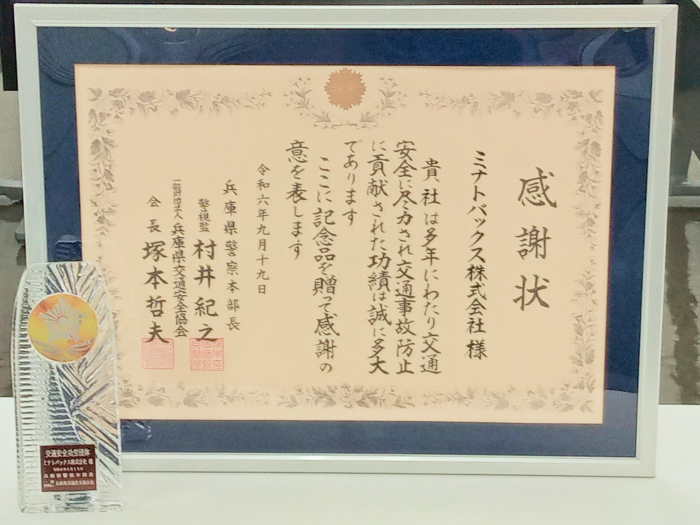 感謝状
ミナトパックス株式会社 様
貴社は多年にわたり交通
安全に尽力され交通事故防止
に貢献された功績は誠に多大
であります
ここに記念品を贈って感謝の
意を表します
令和六年九月十九日
兵庫県警察本部長
警視監 村井紀之
一般財団法人 兵庫県交通安全協会
会長 塚本哲夫
交通安全功労団体
ミナトパックス株式会社 様
令和6年9月19日
兵庫県警察本部長